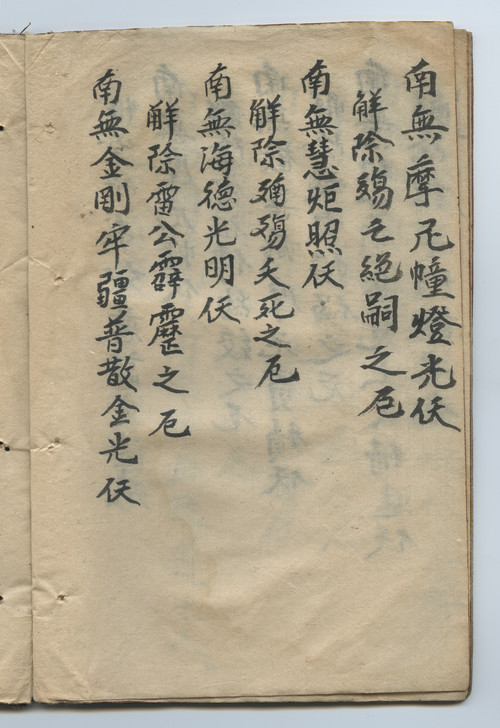 南無摩尼幢燈光仸
解除殤亡絕嗣之厄
南無慧炬照仸
解除殤夭死之厄
南無海德光明仸
解除雷公霹靂之厄
南無金剛牢疆普散金光仸